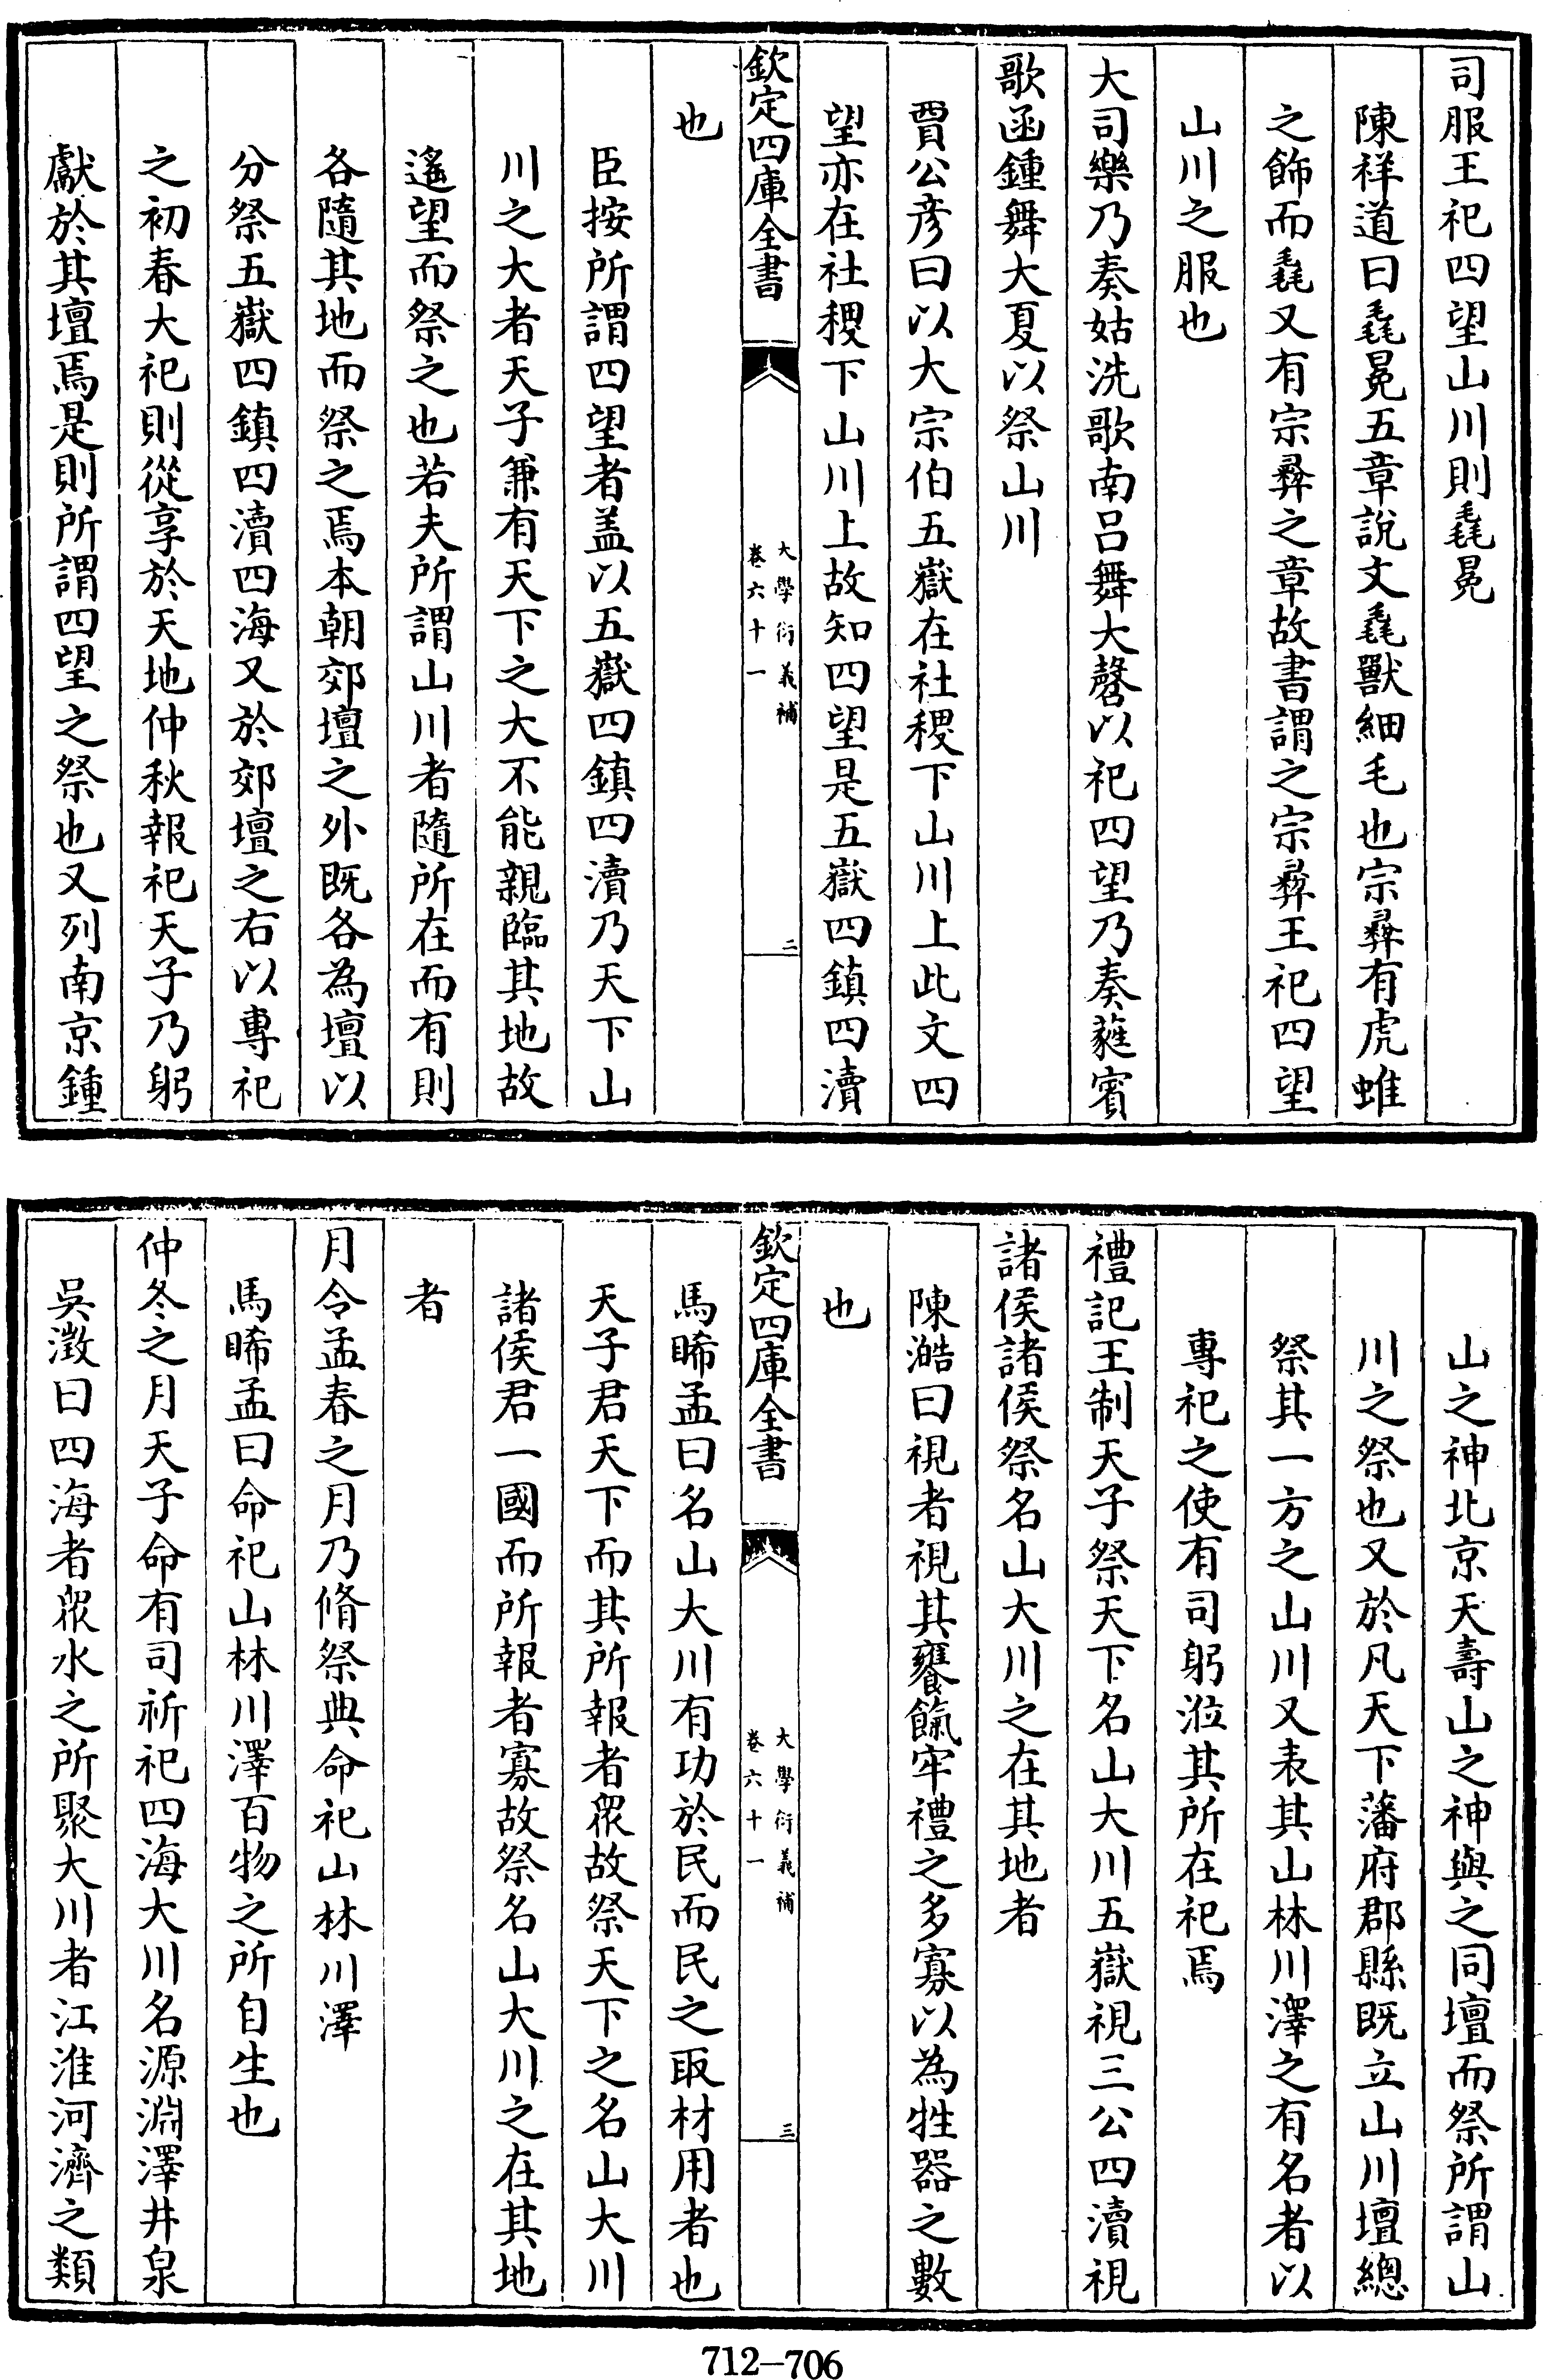 司服王祀四望山川則毳冕
陳祥道曰毳冕五章說文毳獸細毛也宗彞有虎蜼
之飾而毳又有宗彞之章故書謂之宗彞王祀四望
山川之服也
大司樂乃奏姑洗歌南呂舞大㲈以祀四望乃奏蕤賓
歌函鍾舞大夏以祭山川
賈公彦曰以大宗伯五嶽在社稷下山川上此文四
望亦在社稷下山川上故知四望是五嶽四鎮四瀆
欽定四庫全書
大學衍義補
卷六十一
二
也
臣按所謂四望者盖以五嶽四鎮四瀆乃天下山
川之大者天子兼有天下之大不能親臨其地故
遙望而祭之也若夫所謂山川者隨所在而有則
各隨其地而祭之焉本朝郊壇之外既各為壇以
分祭五嶽四鎮四瀆四海又於郊壇之右以專祀
之初春大祀則從享於天地仲秋報祀天子乃躬
獻於其壇焉是則所謂四望之祭也又列南京鍾
山之神北京天壽山之神與之同壇而祭所謂山
川之祭也又於凡天下藩府郡縣既立山川壇總
祭其一方之山川又表其山林川澤之有名者以
專祀之使有司躬涖其所在祀焉
禮記王制天子祭天下名山大川五嶽視三公四瀆視
諸侯諸侯祭名山大川之在其地者
陳澔曰視者視其饔餼牢禮之多寡以為牲器之數
也
欽定四庫全書
大學衍義補
卷六十一
三
馬睎孟曰名山大川有功於民而民之取材用者也
天子君天下而其所報者衆故祭天下之名山大川
諸侯君一國而所報者寡故祭名山大川之在其地
者
月令孟春之月乃脩祭典命祀山林川澤
馬睎孟曰命祀山林川澤百物之所自生也
仲冬之月天子命有司祈祀四海大川名源淵澤井泉
吳澂曰四海者衆水之所聚大川者江淮河濟之類
712—706